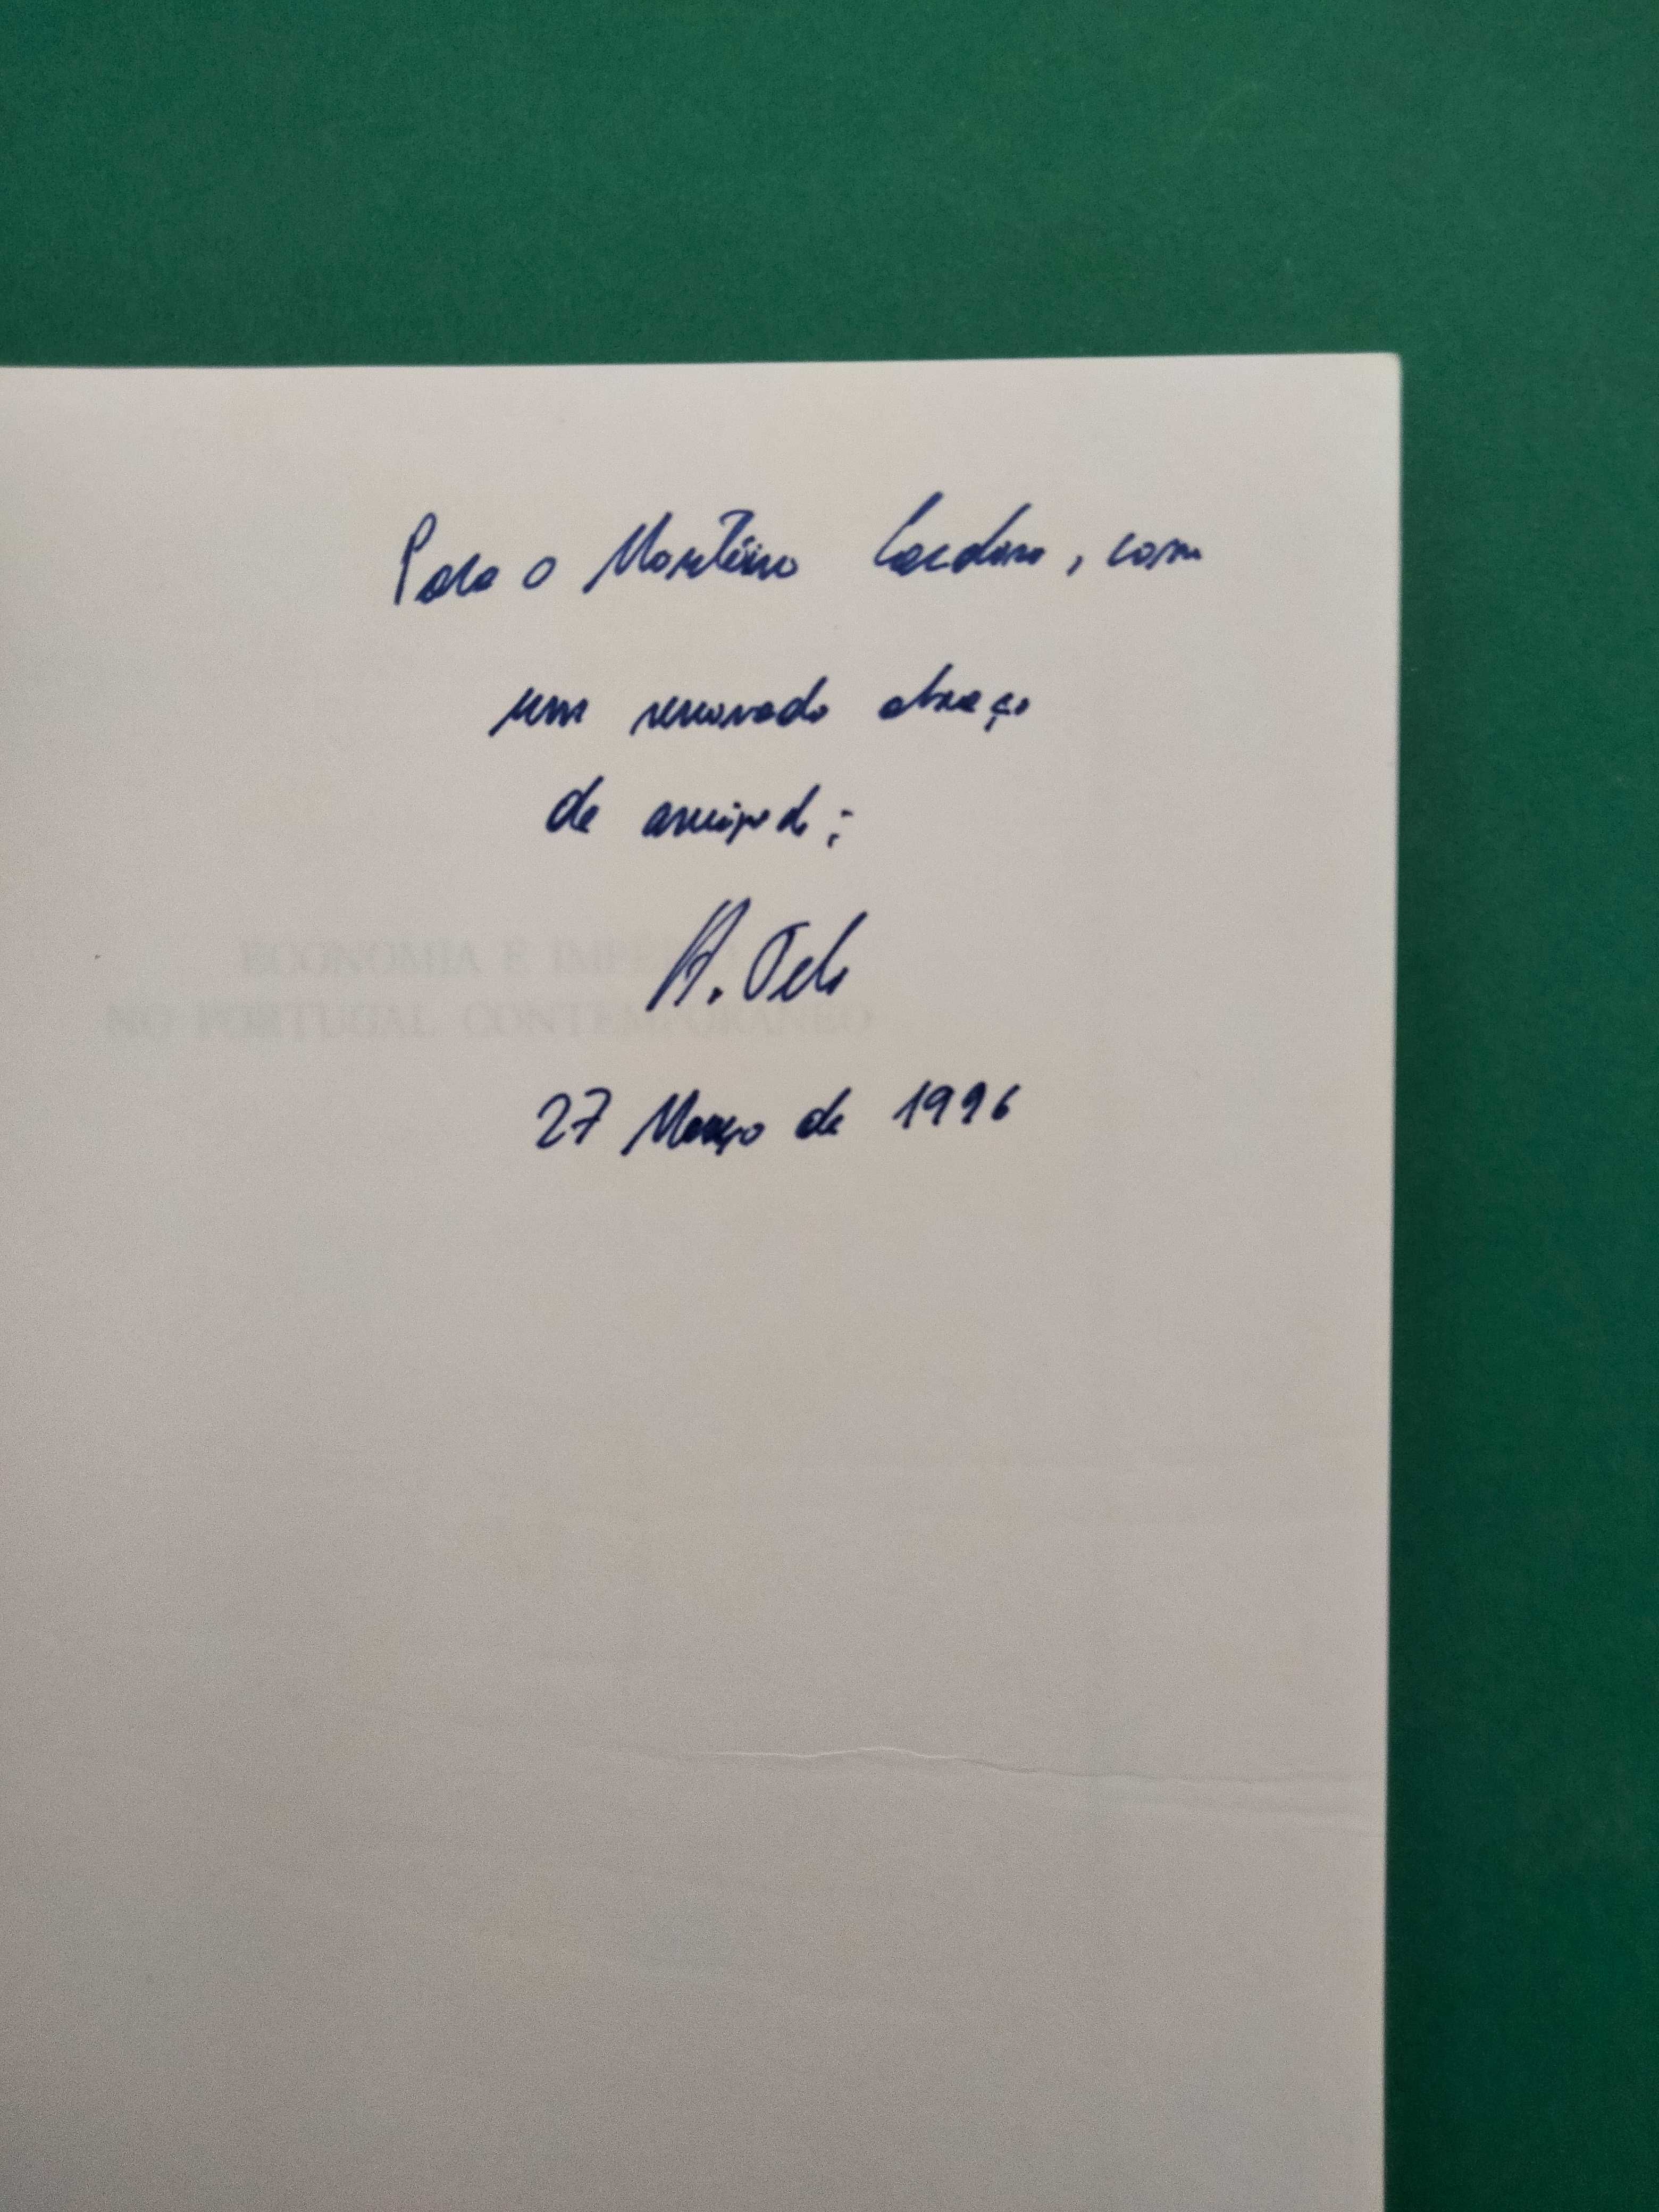 Para o Monteiro Cardoso, com
um renovado abraço
de amizade:
ECONOMIA E IMPÉRIO
NO PORTUGAL CONTEMPORÂNEO
27 Março de 1996